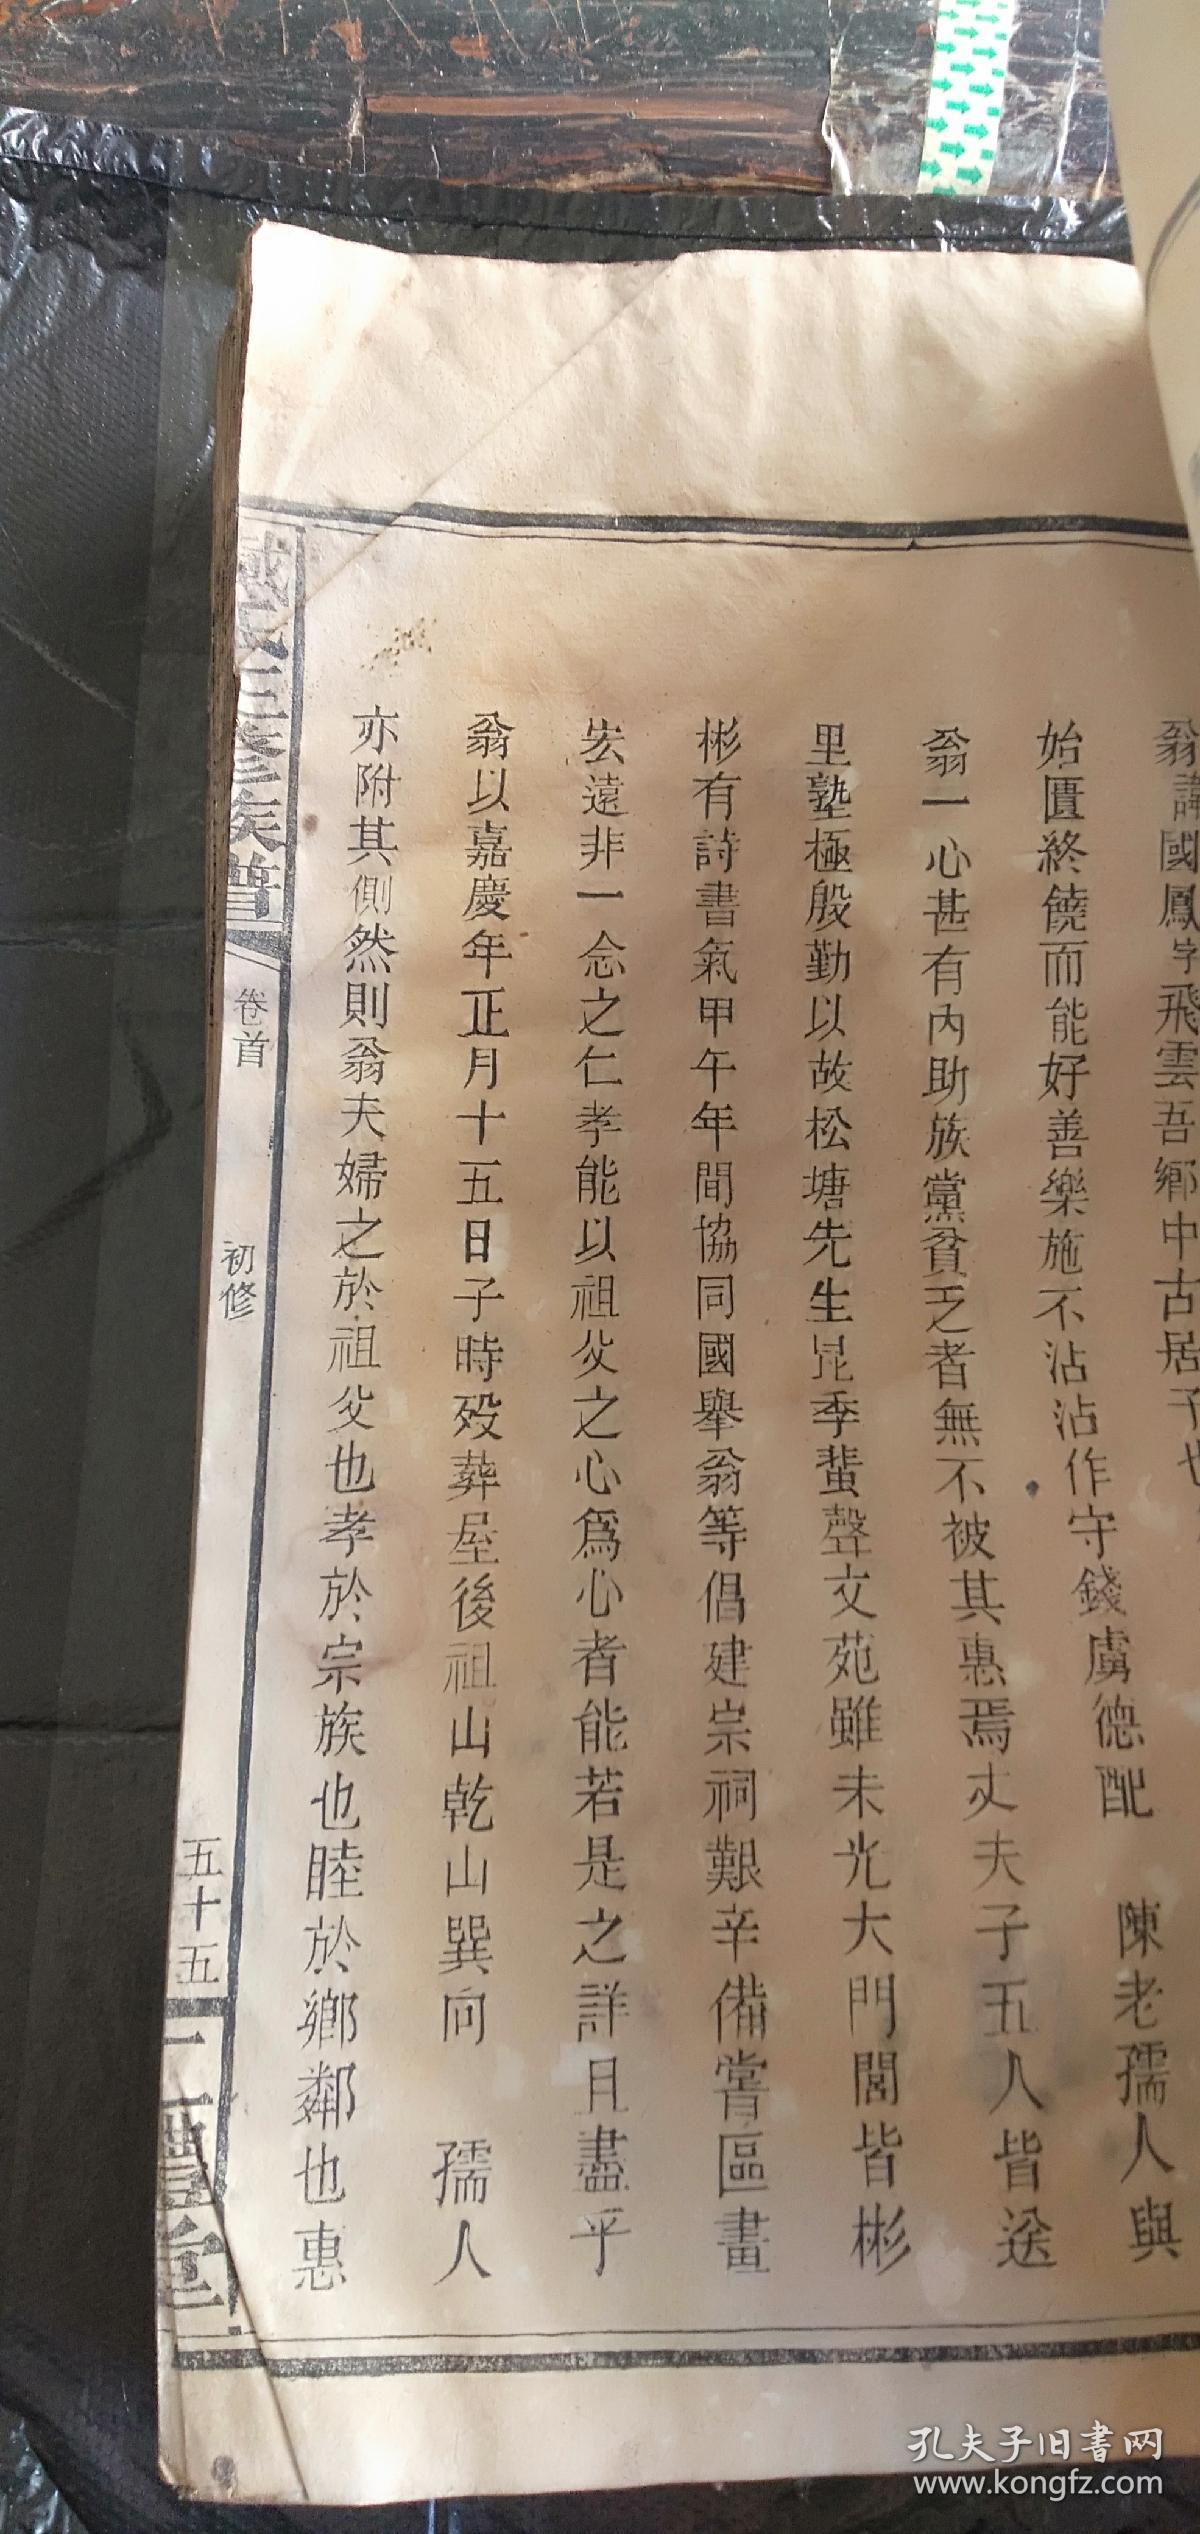 翁諱國鳳字飛雲吾鄉中古居子也
始匱終饒而能好善樂施不沾沾作守錢虜德配　陳老孺人與
翁一心甚有內助族黨貧乏者無不被其惠焉丈夫子五人皆送
里塾極殷勤以故松塘先生昆季蜚聲文苑雖未光大門閭皆彬
彬有詩書氣甲午年間協同國舉翁等倡建宗祠艱辛備嘗區畫
宏遠非一念之仁孝能以祖父之心為心者能若是之詳且盡乎
翁以嘉慶年正月十五日子時歿葬屋後祖山乾山巽向　孺人
亦附其側然則翁夫婦之於祖父也孝於宗族也睦於鄉鄰也惠
氏三修族譜
卷首
初修
五十五
禮堂
孔夫子旧书网
www.kongfz.com